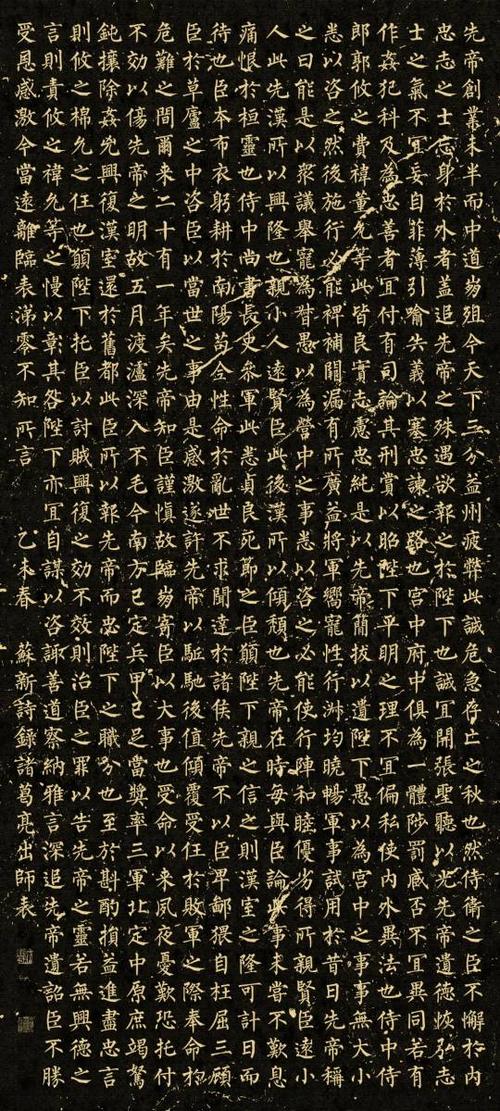 先帝創業未半而中道崩殂今天下三分益州疲弊此誠危急存亡之秋也然侍衛之臣不懈於內
忠志之士忘身於外者蓋追先帝之殊遇欲報之於陛下也誠宜開張聖聽以光先帝遺德恢弘志
士之氣不宜妄自菲薄引喻失義以塞忠諫之路也宮中府中俱為一體陟罰臧否不宜異同若有
作姦犯科及為忠善者宜付有司論其刑賞以昭陛下平明之理不宜偏私使內外異法也侍中侍
郎郭攸之費禕董允等此皆良實志慮忠純是以先帝簡拔以遺陛下愚以為宮中之事事無大小
悉以咨之然後施行必能裨補闕漏有所廣益將軍嚮寵性行淑均曉暢軍事試用於昔日先帝稱
之曰能是以眾議舉寵為督愚以為營中之事悉以咨之必能使行陣和睦優劣得所親賢臣遠小
人此先漢所以興隆也親小人遠賢臣此後漢所以傾頹也先帝在時每與臣論此事未嘗不歎息
痛恨於桓靈也侍中尚書長史參軍此悉貞良死節之臣願陛下親之信之則漢室之隆可計日而
待也臣本布衣躬耕於南陽苟全性命於亂世不求聞達於諸侯先帝不以臣卑鄙猥自枉屈三顧
臣於草廬之中咨臣以當世之事由是感激遂許先帝以驅馳後值傾覆受任於敗軍之際奉命於
危難之間爾來二十有一年矣先帝知臣謹慎故臨崩寄臣以大事也受命以來夙夜憂歎恐托付
不効以傷先帝之明故五月渡瀘深入不毛今南方已定兵甲已足當獎率三軍北定中原庶竭駑
鈍攘除姦兇興復漢室還於舊都此臣所以報先帝而忠陛下之職分也至於斟酌損益進盡忠言
則攸之禕允之任也願陛下托臣以討賊興復之効不效則治臣之罪以告先帝之靈若無興德之
言則責攸之禕允等之慢以彰其咎陛下亦宜自謀以咨諏善道察納雅言深追先帝遺詔臣不勝
受恩感激今當遠離臨表涕零不知所言 乙未春 蘇新詩錄諸葛亮出師表